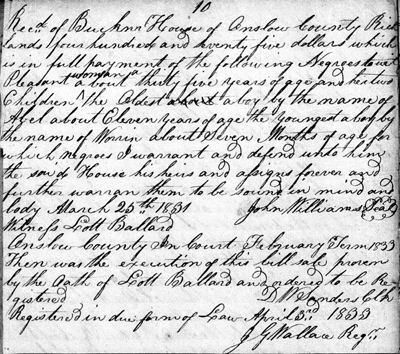 10
Rec.d of Buckner House of Onslow County Rich
lands four hundred and seventy five dollars which
is in full payment of the following Negroes to wit
Pleasant woman a about thirty five years of age and her two
Children the Oldest a boy by the name of
about Eleven years of age the youngest a boy by
the name of Worrin about Seven Months of age for
which negroes I warrant and defend unto him
the House his heirs and assigns forever and
further warran them to be Sound in mind and
body March 25th 1831 John Williams Seal
Witness Lott Ballard
Onslow County In Court February Term 1833
Then was the execution of this bill sale proven
by the Oath of Lott Ballard and ordered to be Re
gistered D W Sanders Clk
Registered in due form of Law April 3rd 1833
J G Wallace Regr.